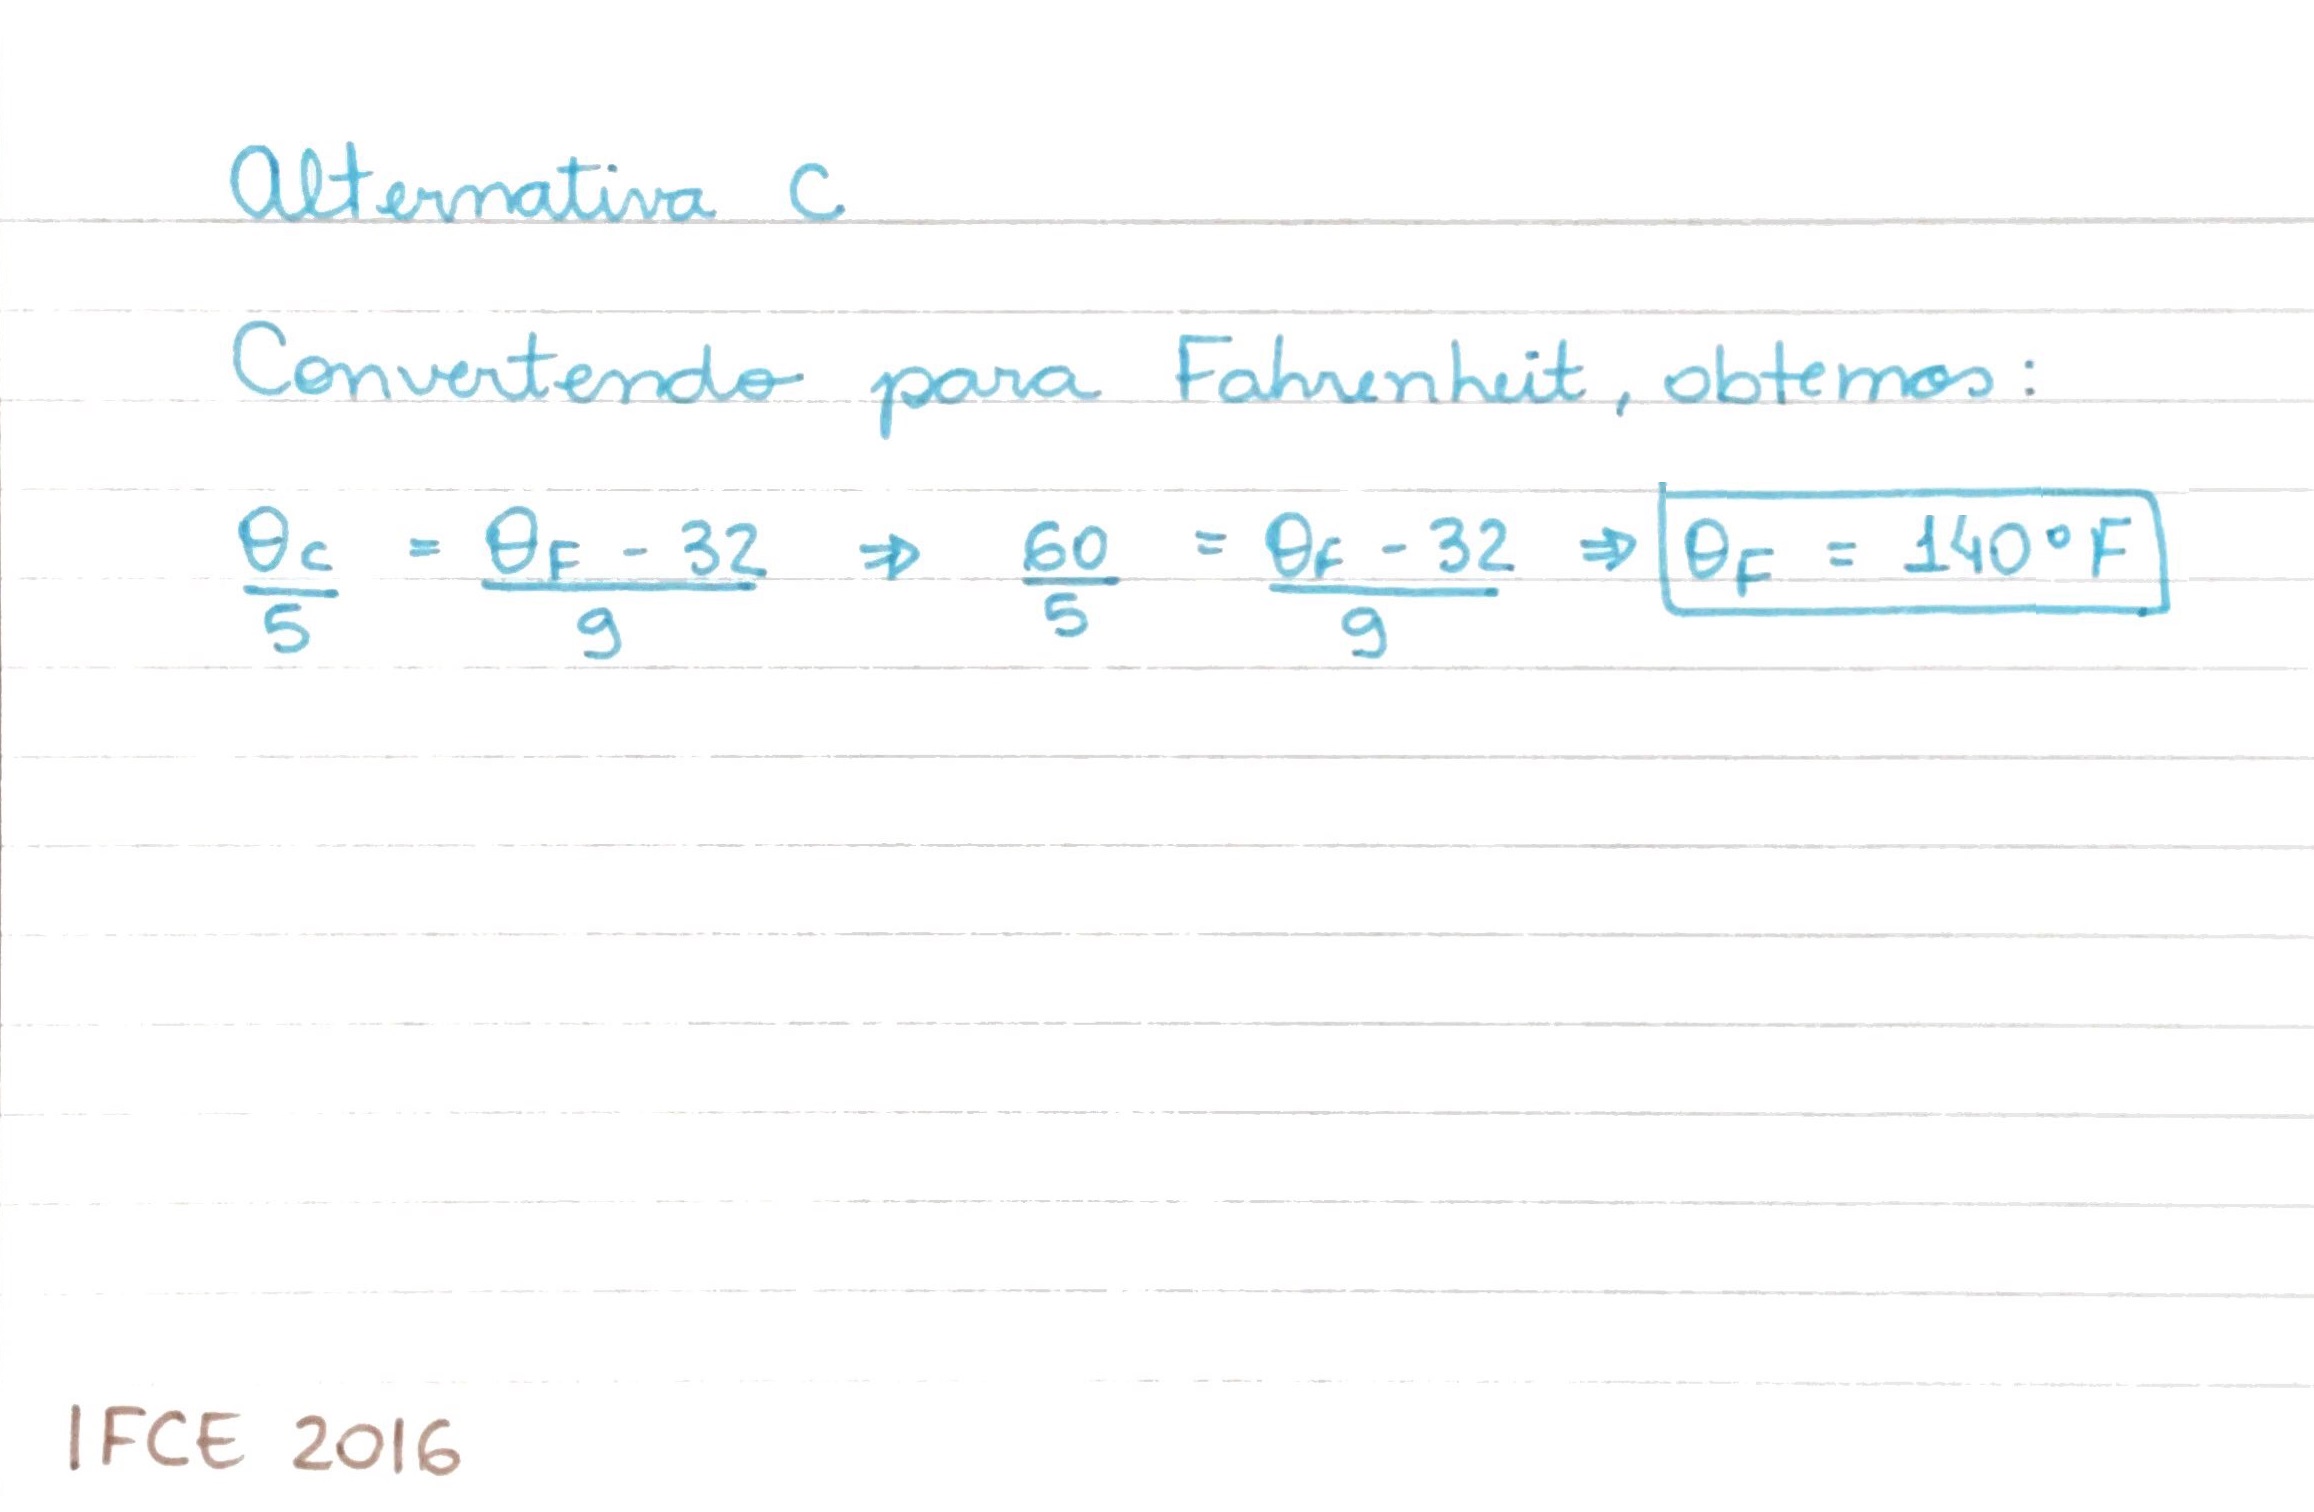 Alternativa C.
Convertendo para Fahrenheit, obtemos:
θc/5 = θF - 32/9 ⇒ 60/5 = θF - 32/9 ⇒ θF = 140°F
IFCE 2016